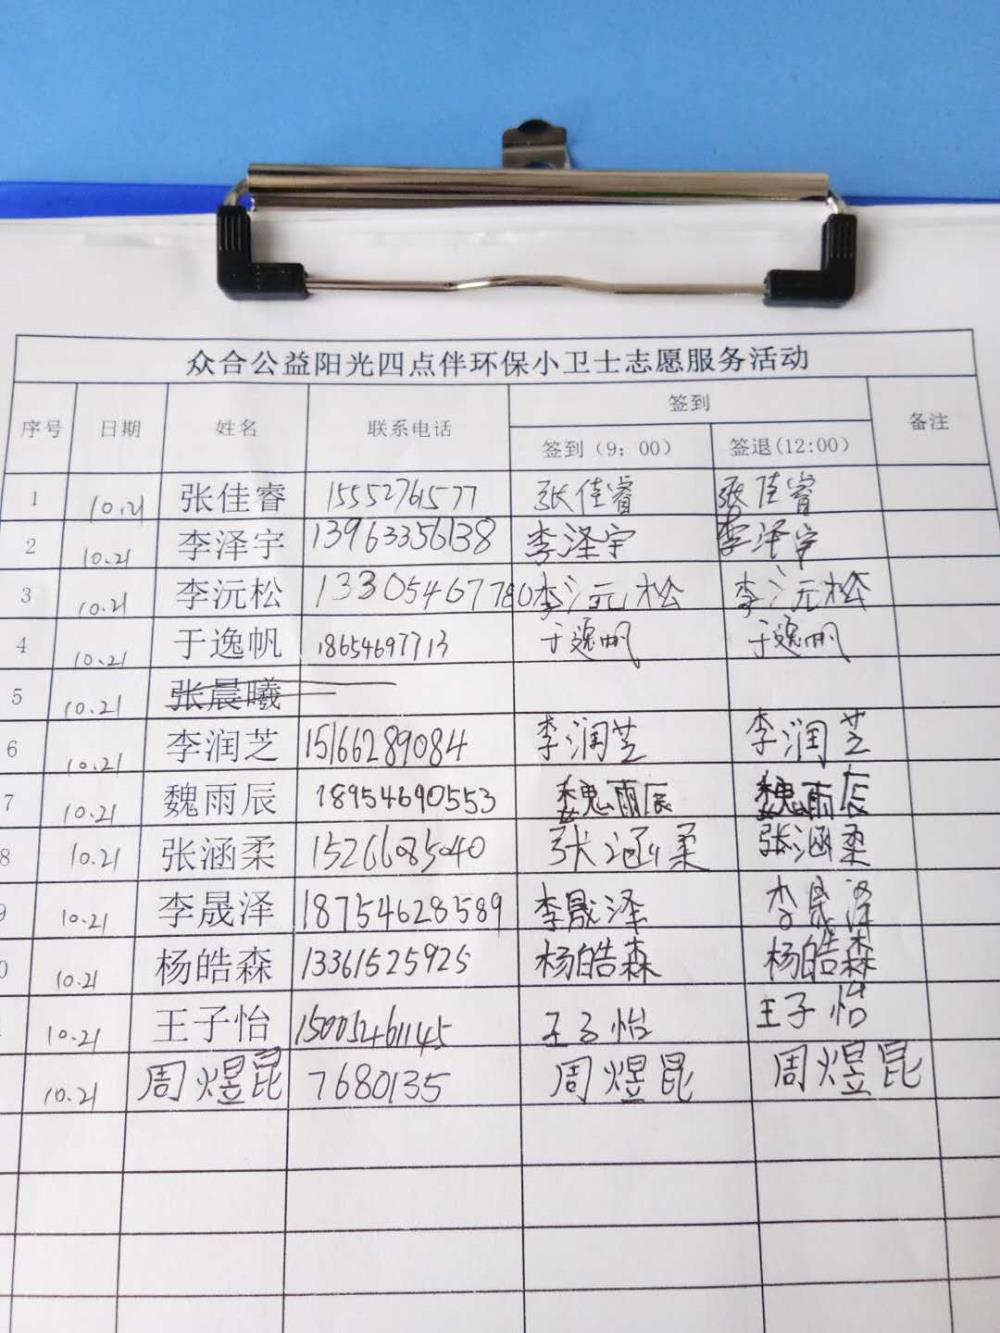 众合公益阳光四点伴环保小卫士志愿服务活动
序号 日期 姓名 联系电话 签到 备注
签到（9：00） 签退(12:00)
1 10.21 张佳睿 15552761577 张佳睿 张佳睿
2 10.21 李泽宇 13963356138 李泽宇 李泽宇
3 10.21 李沅松 13305467780 李沅松 李沅松
4 10.21 于逸帆 18654697713 于逸帆 于逸帆
5 10.21 张晨曦
6 10.21 李润芝 15166289084 李润芝 李润芝
7 10.21 魏雨辰 18954690553 魏雨辰 魏雨辰
8 10.21 张涵柔 15266085040 张涵柔 张涵柔
9 10.21 李晟泽 18754628589 李晟泽 李晟泽
0 10.21 杨皓森 13361525925 杨皓森 杨皓森
10.21 王子怡 15005461145 王子怡 王子怡
10.21 周煜昆 7680135 周煜昆 周煜昆